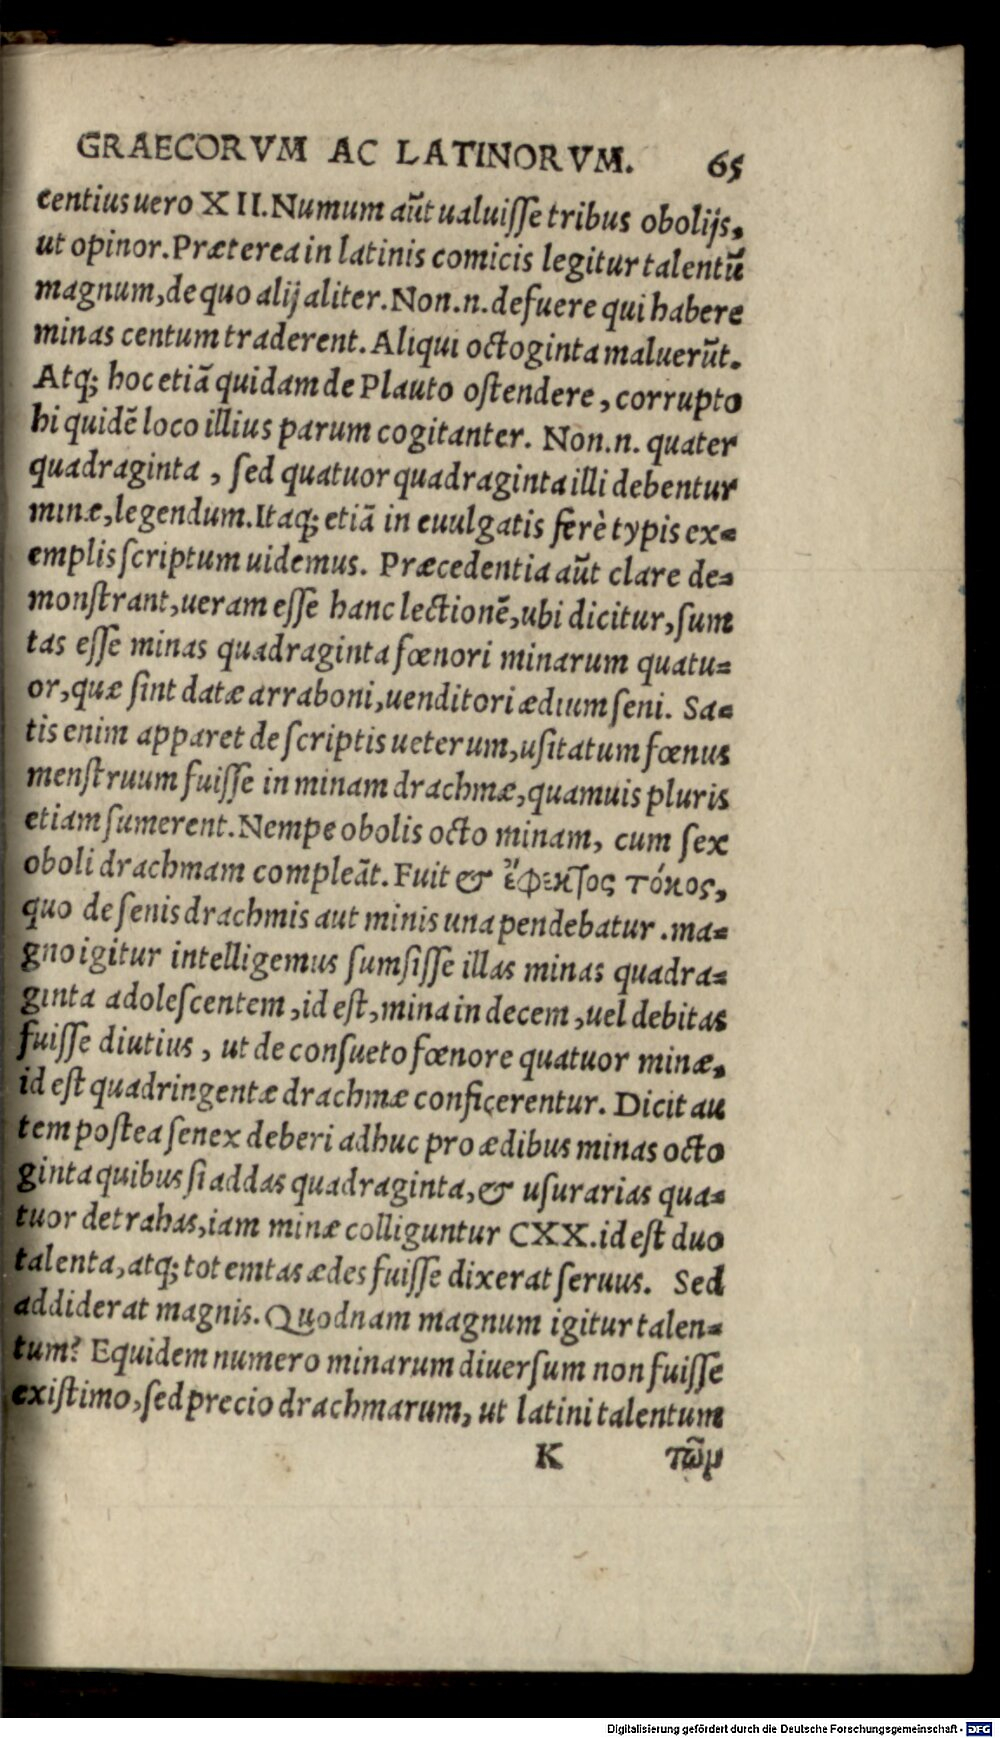 GRAECORVM AC LATINORVM. 65
centius uero XII. Numum aũt ualuiſſe tribus obolijs,
ut opinor. Præterea in latinis comicis legitur talentũ
magnum, de quo alij aliter. Non.n. defuere qui habere
minas centum traderent. Aliqui octoginta maluerũt.
Atq; hoc etiã quidam de Plauto oſtendere, corrupto
hi quidẽ loco illius parum cogitanter. Non.n. quater
quadraginta, ſed quatuor quadraginta illi debentur
minæ, legendum. Itaq; etiã in euulgatis ferè typis ex=
emplis ſcriptum uidemus. Præcedentia aũt clare de=
monſtrant, ueram eſſe hanc lectionẽ, ubi dicitur, ſum
tas eſſe minas quadraginta fœnori minarum quatu=
or, quæ ſint datæ arraboni, uenditori ædium ſeni. Sa=
tis enim apparet de ſcriptis ueterum, uſitatum fœnus
menſtruum fuiſſe in minam drachmæ, quamuis pluris
etiam ſumerent. Nempe obolis octo minam, cum ſex
oboli drachmam compleãt. Fuit & ἔφεκτος τόκος,
quo de ſenis drachmis aut minis una pendebatur. ma=
gno igitur intelligemus ſumſiſſe illas minas quadra=
ginta adoleſcentem, id eſt, mina in decem, uel debitas
fuiſſe diutius, ut de conſueto fœnore quatuor minæ,
id eſt quadringentæ drachmæ conficerentur. Dicit au
tem poſtea ſenex deberi adhuc pro ædibus minas octo
ginta quibus ſi addas quadraginta, & uſurarias qua=
tuor detrahas, iam minæ colliguntur CXX. id eſt duo
talenta, atq; tot emtas ædes fuiſſe dixerat ſeruus. Sed
addiderat magnis. Quodnam magnum igitur talen=
tum? Equidem numero minarum diuerſum non fuiſſe
exiſtimo, ſed precio drachmarum, ut latini talentum
K τῶν
Digitalisierung gefördert durch die Deutsche Forschungsgemeinschaft - DFG